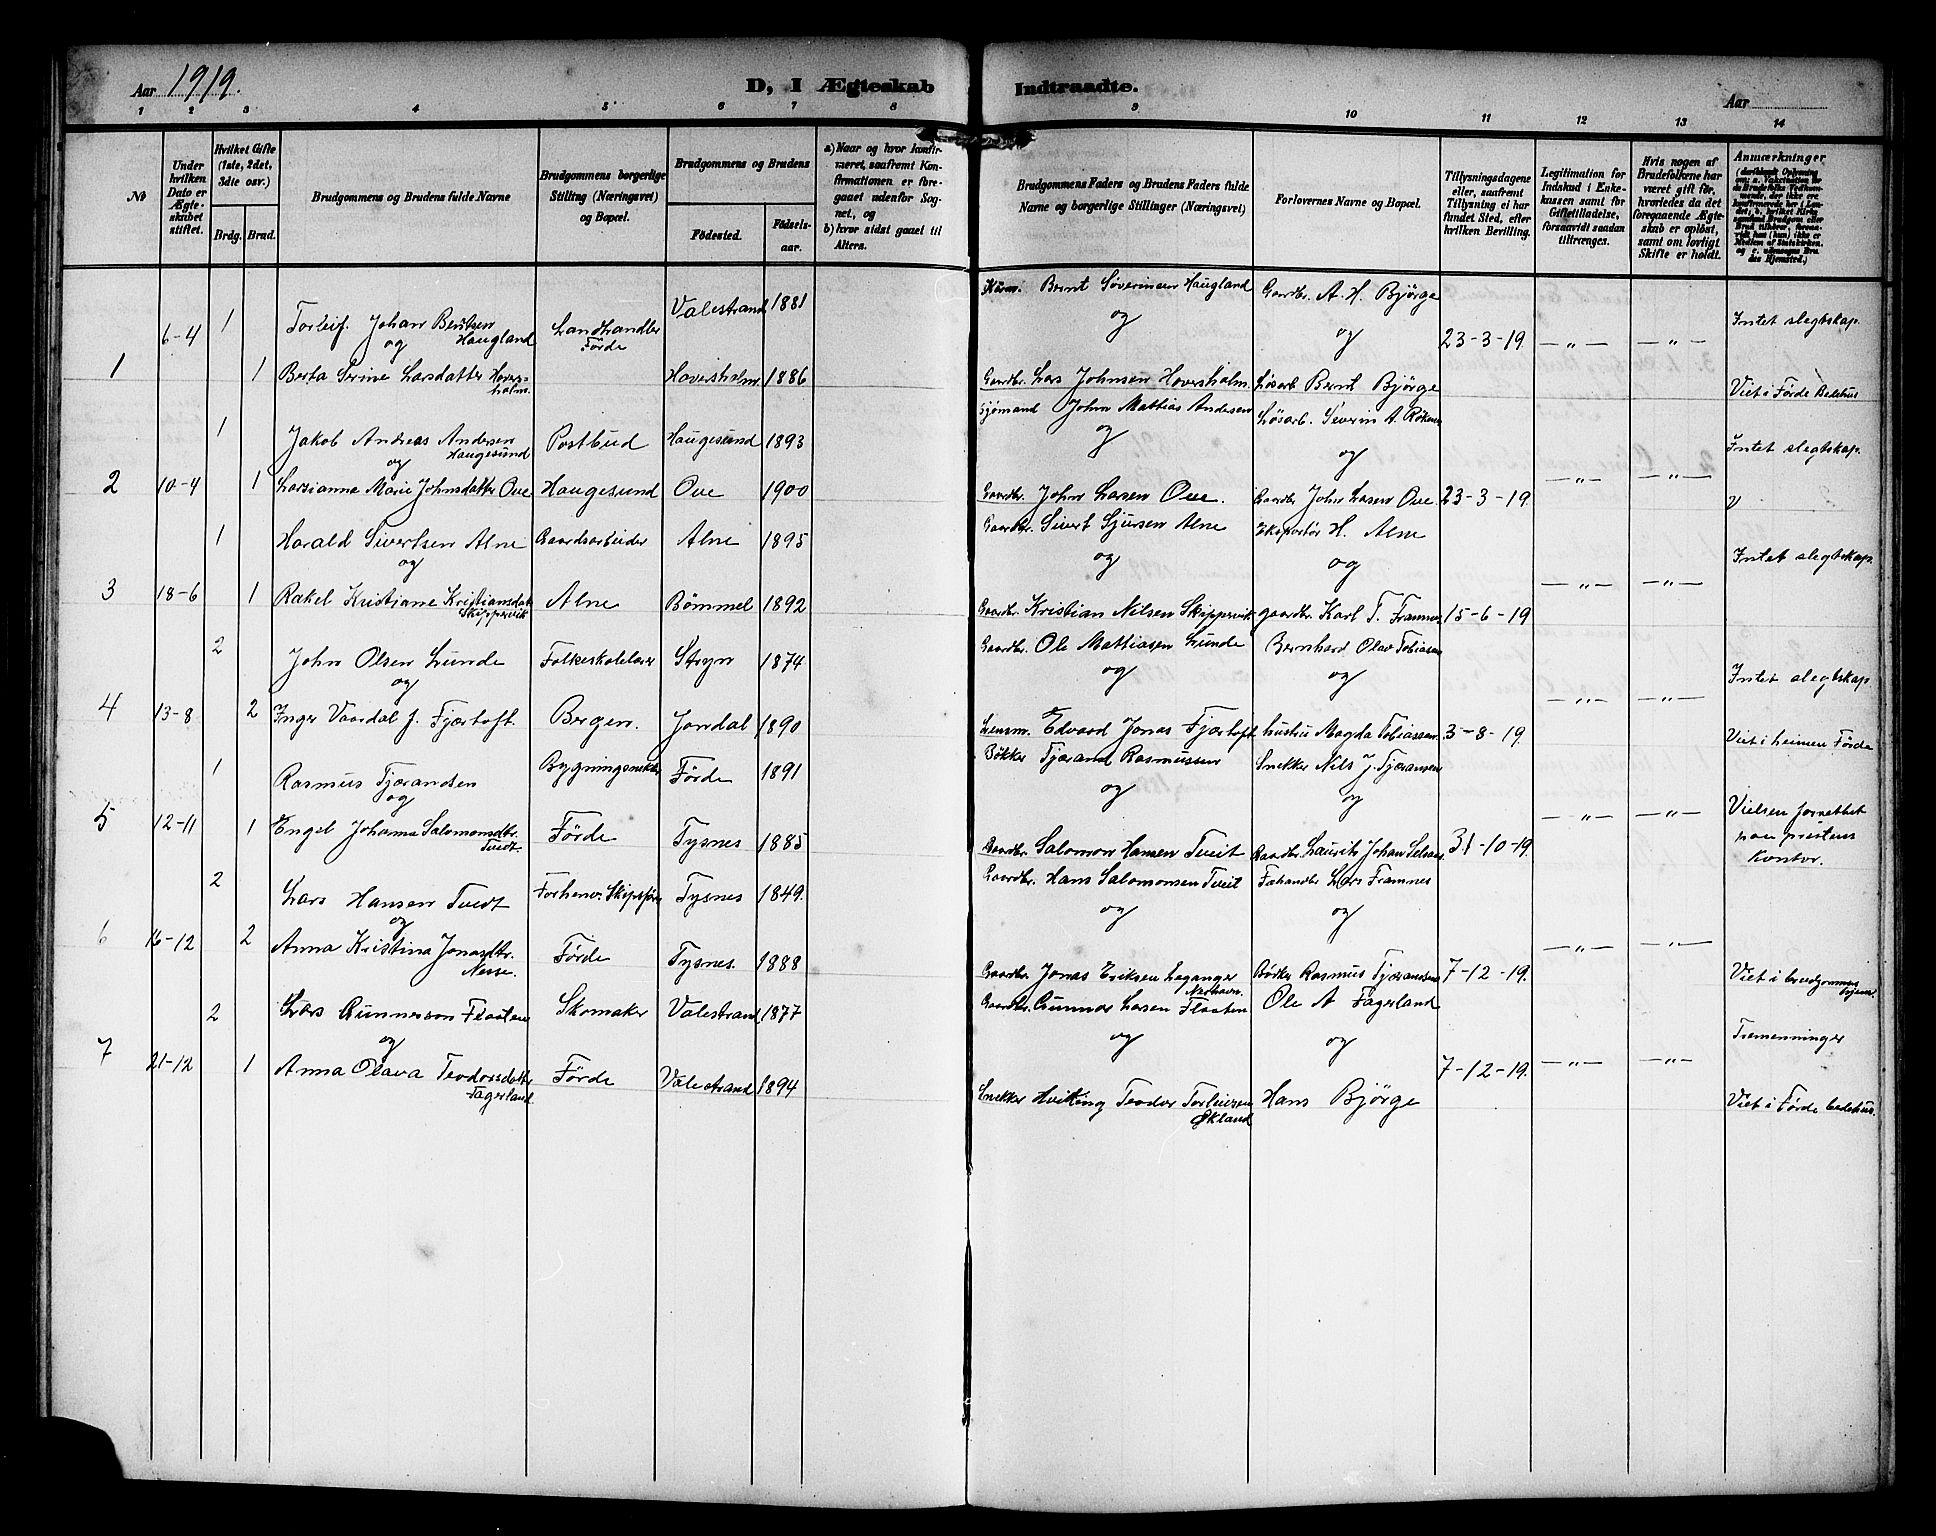 Aar 1919.
D, I Ægteskab Indtraadte.
Aar
1 2 3 4 5 6 7 8 9 10 11 12 13 14
№
Under hvilken Dato er Ægteskabet stiftet.
Hvilket Gifte (1ste, 2det, 3die osv.)
Brdg. Brud.
Brudgommens og Brudens fulde Navne
Brudgommens borgerlige Stilling (Næringsvei) og Bopæl.
Brudgommens og Brudens
Fødested. Fødselsaar.
a) Naar og hvor konfirmeret, saafremt Konfirmationen er foregaaet udenfor Sognet, og
b) hvor sidst gaaet til Alters.
Brudgommens Faders og Brudens Faders fulde Navne og borgerlige Stillinger (Næringsvei)
Forlovernes Navne og Bopæl.
Tillysningsdagene eller, saafremt Tillysning ei har fundet Sted, efter hvilken Bevilling.
Legitimation for Indskud i Enkekassen samt for Giftetilladelse, forsaavidt saadan tiltrænges.
Hvis nogen af Brudefolkene har været gift før, hvorledes da det foregaaende Ægteskab er opløst, samt om lovligt Skifte er holdt.
Anmærkninger
1 6-4 1 Torleif Johan Berntsen Haugland Landhandler Förde Valestrand 1881 Bernt Søverinsen Haugland Gaardbr. A. H. Bjørge 23-3-19. —„— —„— Intet slegtskap.
og og og
1 Berta Serine Larsdatter Hoversholm. Hoversholm 1886 Gaardbr. Lars Johnsen Hoversholm. Løsarb. Bernt Bjørge Viet i Förde Bedehus
2 10-4 1 Jakob Andreas Andersen Haugesund Postbud Haugesund 1893 Sjömand John Mattias Andersen Løsarb. Severin A. Intet slegtskap.
og og og
1 Larsianna Marie Johnsdatter Ove Haugesund Ove 1900 Gaardbr. John Larsen Ove. Gaardbr. John Larsen Ove 23-3-19. —„— —„—
3 18-6 1 Harald Sivertsen Alne Gaardsarbeider Alne 1895 Gaardbr. Sivert Sjursen Alne Eksportör H. Alne Intet slegtskap
og og og
1 Rakel Kristiane Kristiansdat Skippervik Alne Bömmel 1892 Gaardbr. Kristian Nilsen Skippervik gaardbr. Karl T. Framnes 15-6-19 —„— —„—
4 13-8 2 John Olsen Lunde Folkeskolelærer Stryn 1874 Gaardbr. Ole Mattiasen Lunde Bernhard Olav Tobiasen Intet slegtskap
og og og
2 Inger Vaardal f. Fjærtoft. Bergen. Jondal 1890 Lensm. Edvard Jonas Fjærtoft hustru Magda Tobiassen 3-8-19. —„— —„— Viet i heimen Förde
5 12-11 1 Rasmus Tjærandsen Förde 1891 Bökker Tjærand Rasmussen Snekker Nils J. Tjæransen
og og og
1 Engel Johanna Salomonsdtr. Tvedt Förde Tysnes 1885 Gaardbr. Salomon Hansen Tveit Gaardbr. Laurits Johan 31-10-19. —„— —„— Vielsen forrettet paa prestens kontor.
6 16-12 2 Lars Hansen Tvedt Forhenv. Skipsfører Tysnes 1849. Gaardbr. Hans Salomonsen Tveit Fæhandler Lars Framnes
og og og
2 Anna Kristina Jonasdtr. Nesse. Förde Tysnes. 1888 Gaardbr. Jonas Eriksen Leganger Nashavn. Bødker Rasmus Tjærandsen 7-12-19. —„— —„— Viet i brudgommens hjem.
7 21-12 2 Lars Gunnarson Flaaten Skomaker Valestrand 1877 Gaardbr. Gunnar Larsen Flaaten Ole A Fagerland Tremenninger
og og og
1 Anna Olava Teodorsdatter Fagerland Förde Valestrand 1894 Snekker Hvitting Teodor Torleivsen Økland Hans Bjørge 7-12-19. —„— —„— Viet i Förde bedehus.